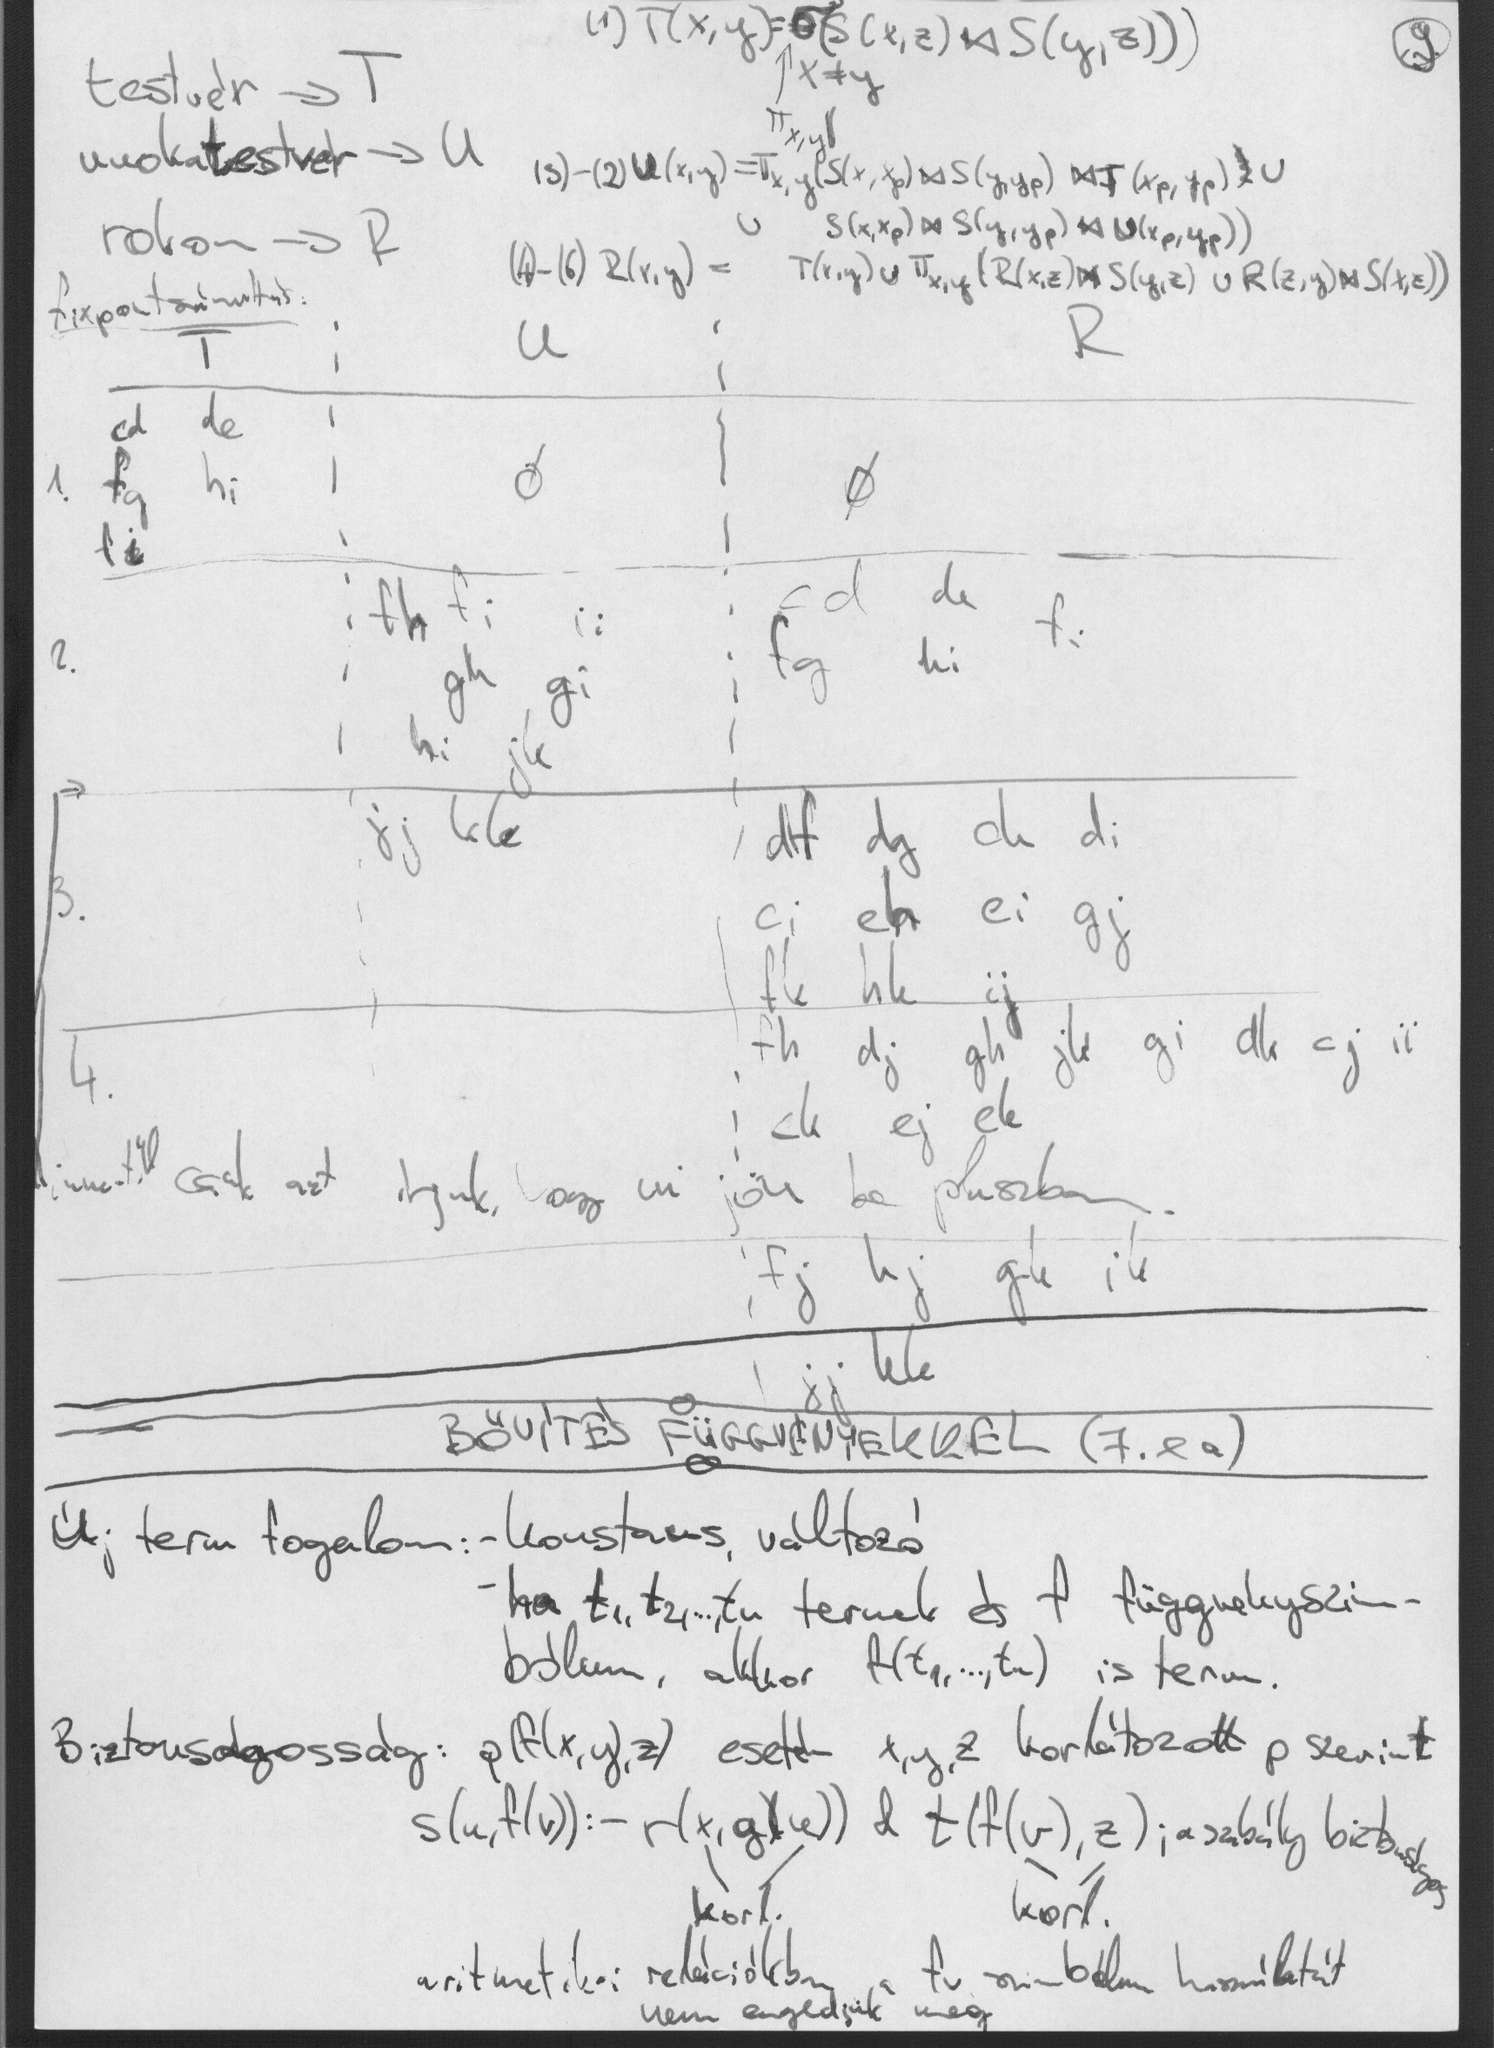 (1) T(x,y)=σ(S(x,z) ⋈ S(y,z)))
9.
x≠y
Π x,y
testvér → T
unokatestvér → U
(3)-(2) U(x,y) = Π x,y (S(x,xp) ⋈ S(y,yp) ⋈ T(xp,yp) ∪
∪ S(x,xp) ⋈ S(y,yp) ⋈ U(xp,yp))
rokon → R
(4)-(6) R(x,y) = T(x,y) ∪ Π x,y (R(x,z) ⋈ S(y,z) ∪ R(z,y) ⋈ S(x,z))
fixpontszámítás:
T U R
cd de
1. fg hi ∅ ∅
fi
fh fi ii cd de
2. gh gi fg hi fi
hi jk
jj kk df dg ch di
3. ci eh ei gj
fk hk ij
fh dj gh jk gi dk cj ii
4.
ck ej ek
innentől csak azt írjuk, hogy mi jön be pluszban.
fj hj gk ik
jj kk
BŐVÍTÉS FÜGGVÉNYEKKEL (7. ea)
Új term fogalom: - konstans, változó
- ha t1, t2, ..., tn termek és f függvényszim-
bólum, akkor f(t1, ..., tn) is term.
Biztonságosság: p(f(x,y),z) esetén x,y,z korlátozott p szerint
s(u,f(v)):- r(x,g(u)) & t(f(v),z) ; a szabály biztonságos
korl. korl.
aritmetikai relációkban a fv szimbólum használatát
nem engedjük meg